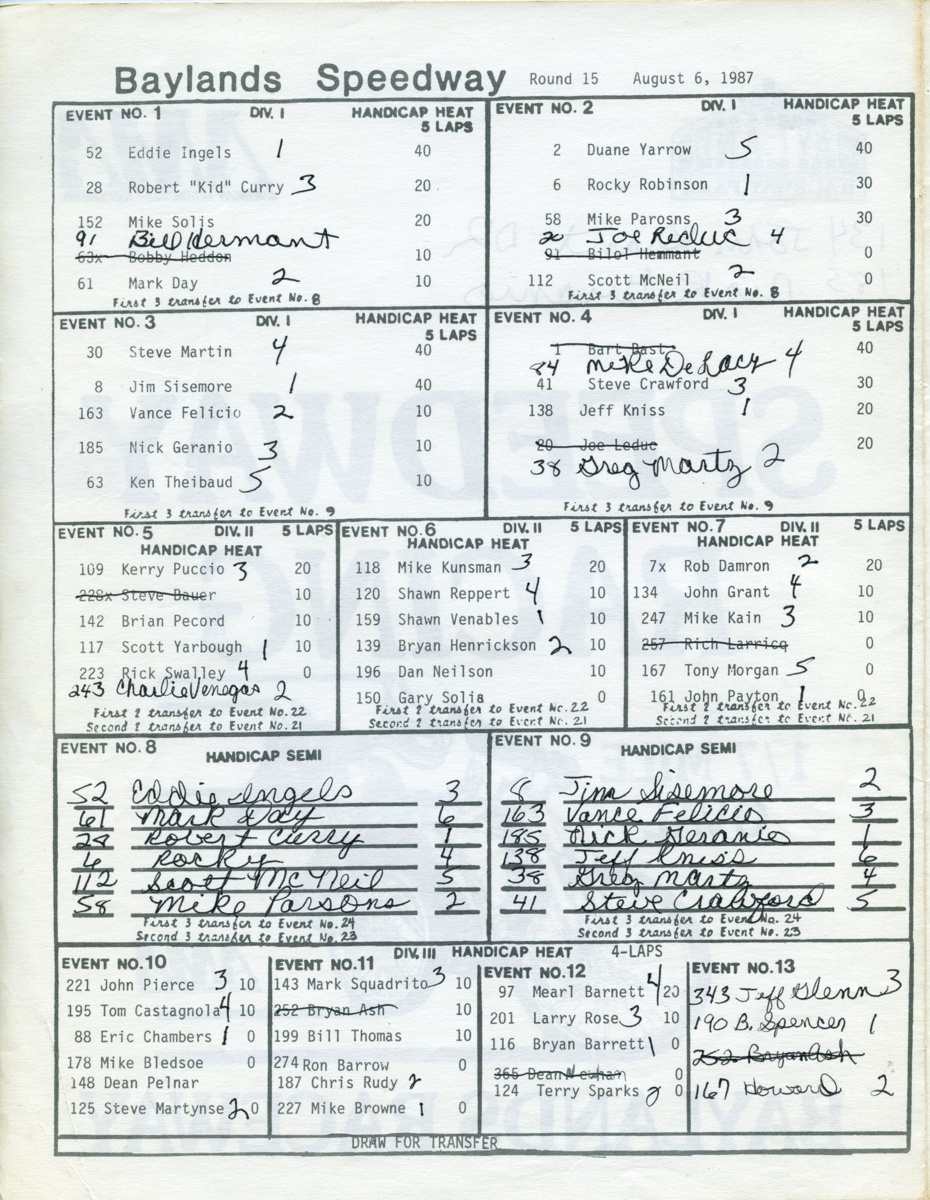 Baylands Speedway Round 15 August 6, 1987
EVENT NO. 1 DIV. I HANDICAP HEAT
5 LAPS
52 Eddie Ingels 1 40
28 Robert "Kid" Curry 3 20
152 Mike Solis 20
91 Bill Hermant
63x Bobby Heddon 10
61 Mark Day 2 10
First 3 transfer to Event No. 8
EVENT NO. 2 DIV. I HANDICAP HEAT
5 LAPS
2 Duane Yarrow 5 40
6 Rocky Robinson 1 30
58 Mike Parosns 3 30
20 Joe Reduc 4
91 Bilol Hemmant 0
112 Scott McNeil 2 0
First 3 transfer to Event No. 8
EVENT NO. 3 DIV. I HANDICAP HEAT
5 LAPS
30 Steve Martin 4 40
8 Jim Sisemore 1 40
163 Vance Felicio 2 10
185 Nick Geranio 3 10
63 Ken Theibaud 5 10
First 3 transfer to Event No. 9
EVENT NO. 4 DIV. I HANDICAP HEAT
5 LAPS
1 Bart Bast 40
84 Mike DeLacy 4
41 Steve Crawford 3 30
138 Jeff Kniss 1 20
20 Joe Leduc 20
38 Greg Martz 2
First 3 transfer to Event No. 9
EVENT NO. 5 DIV. II 5 LAPS
HANDICAP HEAT
109 Kerry Puccio 3 20
228x Steve Bauer 10
142 Brian Pecord 10
117 Scott Yarbough 1 10
223 Rick Swalley 4 0
243 Charlie Venegas 2
First 2 transfer to Event No.22
Second 2 transfer to Event No. 21
EVENT NO.6 DIV. II 5 LAPS
HANDICAP HEAT
118 Mike Kunsman 3 20
120 Shawn Reppert 4 10
159 Shawn Venables 1 10
139 Bryan Henrickson 2 10
196 Dan Neilson 10
150 Gary Solia 0
First 2 transfer to Event No.22
Second 2 transfer to Event No. 21
EVENT NO.7 DIV. II 5 LAPS
HANDICAP HEAT
7x Rob Damron 2 20
134 John Grant 4 10
247 Mike Kain 3 10
257 Rich Larricq 0
167 Tony Morgan 5 0
161 John Payton 1 0
First 2 transfer to Event No.22
Second 2 transfer to Event No. 21
EVENT NO. 8
HANDICAP SEMI
52 Eddie Ingels 3
61 Mark Day 6
28 Robert Curry 1
6 Rocky 4
112 Scott McNeil 5
58 Mike Parsons 2
First 3 transfer to Event No.24
Second 3 transfer to Event No.23
EVENT NO. 9
HANDICAP SEMI
8 Jim Sisemore 2
163 Vance Felicio 3
185 Nick Geranio 1
138 Jeff Kniss 6
38 Greg Martz 4
41 Steve Crawford 5
First 3 transfer to Event No. 24
Second 3 transfer to Event No. 23
DIV. III HANDICAP HEAT 4-LAPS
EVENT NO.10
221 John Pierce 3 10
195 Tom Castagnola 4 10
88 Eric Chambers 1 0
178 Mike Bledsoe 0
148 Dean Pelnar
125 Steve Martynse 2 0
EVENT NO.11
143 Mark Squadrito 3 10
252 Bryan Ash 10
199 Bill Thomas 10
274 Ron Barrow 0
187 Chris Rudy 2
227 Mike Browne 1 0
EVENT NO.12
97 Mearl Barnett 4 20
201 Larry Rose 3 10
116 Bryan Barrett 1 0
365 Dean Newhan 0
124 Terry Sparks 2 0
EVENT NO.13
343 Jeff Glenn 3
190 B. Spencer 1
252 Bryan Ash
167 Howard 2
DRAW FOR TRANSFER